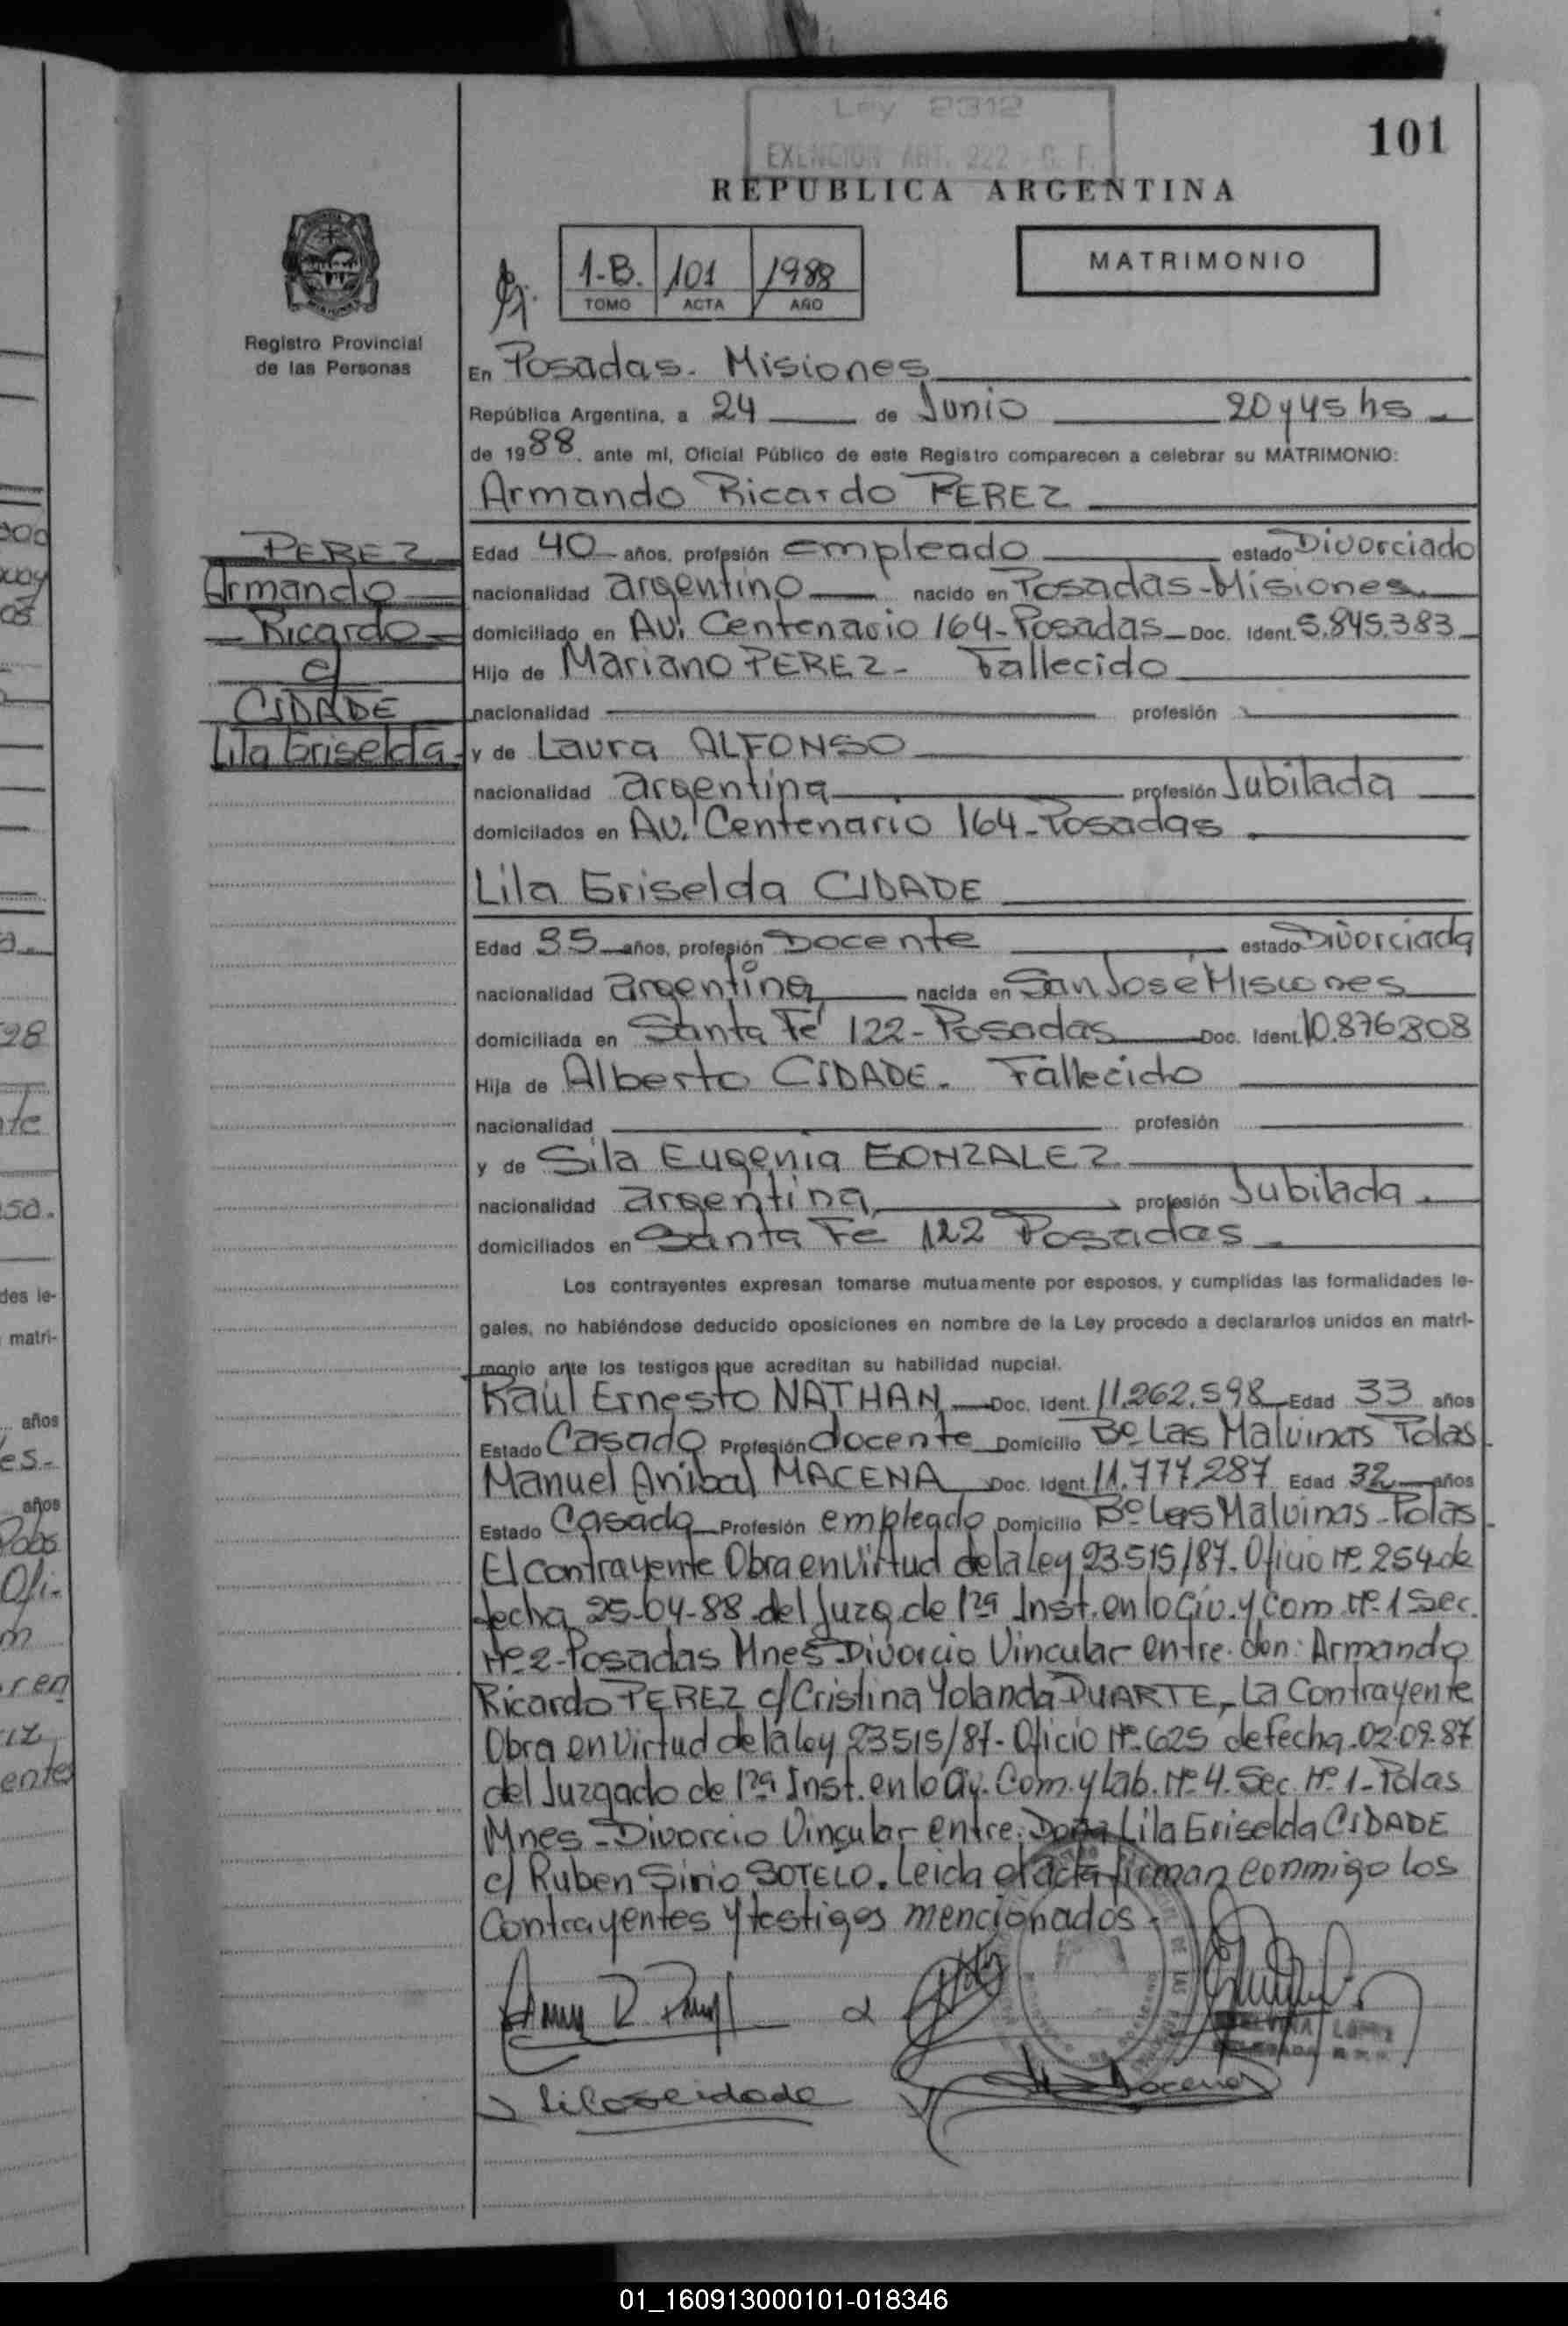 Ley 2312
EXENCION ART. 222 - C. F.
101
REPUBLICA ARGENTINA
1-B. 101 1988
TOMO ACTA AÑO
MATRIMONIO
Registro Provincial
de las Personas
En Posadas. Misiones
República Argentina, a 24 de Junio 20 y 45 hs
de 1988. ante mi, Oficial Público de este Registro comparecen a celebrar su MATRIMONIO:
Armando Ricardo PEREZ
PEREZ
Armando
Ricardo
c/
CIDADE
Lila Griselda
Edad 40 años, profesión empleado estado Divorciado
nacionalidad argentino nacido en Posadas-Misiones
domiciliado en Av. Centenario 164-Posadas Doc. Ident. 5.845.383
Hijo de Mariano PEREZ- Fallecido
nacionalidad profesión
y de Laura ALFONSO
nacionalidad argentina profesión Jubilada
domicilados en Av. Centenario 164-Posadas
Lila Griselda CIDADE
Edad 35 años, profesión Docente estado Divorciada
nacionalidad argentina nacida en San José Misiones
domiciliada en Santa Fé 122-Posadas Doc. Ident. 10.876.808
Hija de Alberto CIDADE. Fallecido
nacionalidad profesión
y de Sila Eugenia GONZALEZ
nacionalidad argentina profesión Jubilada.
domiciliados en Santa Fé 122 Posadas
Los contrayentes expresan tomarse mutuamente por esposos, y cumplidas las formalidades le-
gales, no habiéndose deducido oposiciones en nombre de la Ley procedo a declararlos unidos en matri-
monio ante los testigos que acreditan su habilidad nupcial.
Raúl Ernesto NATHAN Doc. Ident. 11.262.598 Edad 33 años
Estado Casado Profesión docente Domicilio Bº Las Malvinas Pdas
Manuel Anibal MACENA Doc. Ident. 11.777.287 Edad 32 años
Estado Casado Profesión empleado Domicilio Bº Las Malvinas-Pdas
El contrayente Obra en virtud de la ley 23.515/87. Oficio Nº 254 de
fecha 25-04-88 del Juzg. de 1ra Inst. en lo Civ. y Com. Nº 1 Sec.
Nº 2-Posadas Mnes Divorcio Vincular entre: don: Armando
Ricardo PEREZ c/ Cristina Yolanda DUARTE, La Contrayente
Obra en virtud de la ley 23515/87- Oficio Nº 625 de fecha 02.09.87
del Juzgado de 1ra Inst. en lo Civ. Com. y Lab. Nº 4. Sec. Nº 1-Pdas
Mnes-Divorcio Vincular entre: Doña Lila Griselda CIDADE
c/ Ruben Sirio SOTELO. Leida el acta firman conmigo los
Contrayentes y testigos mencionados.
LOPEZ
01_160913000101-018346